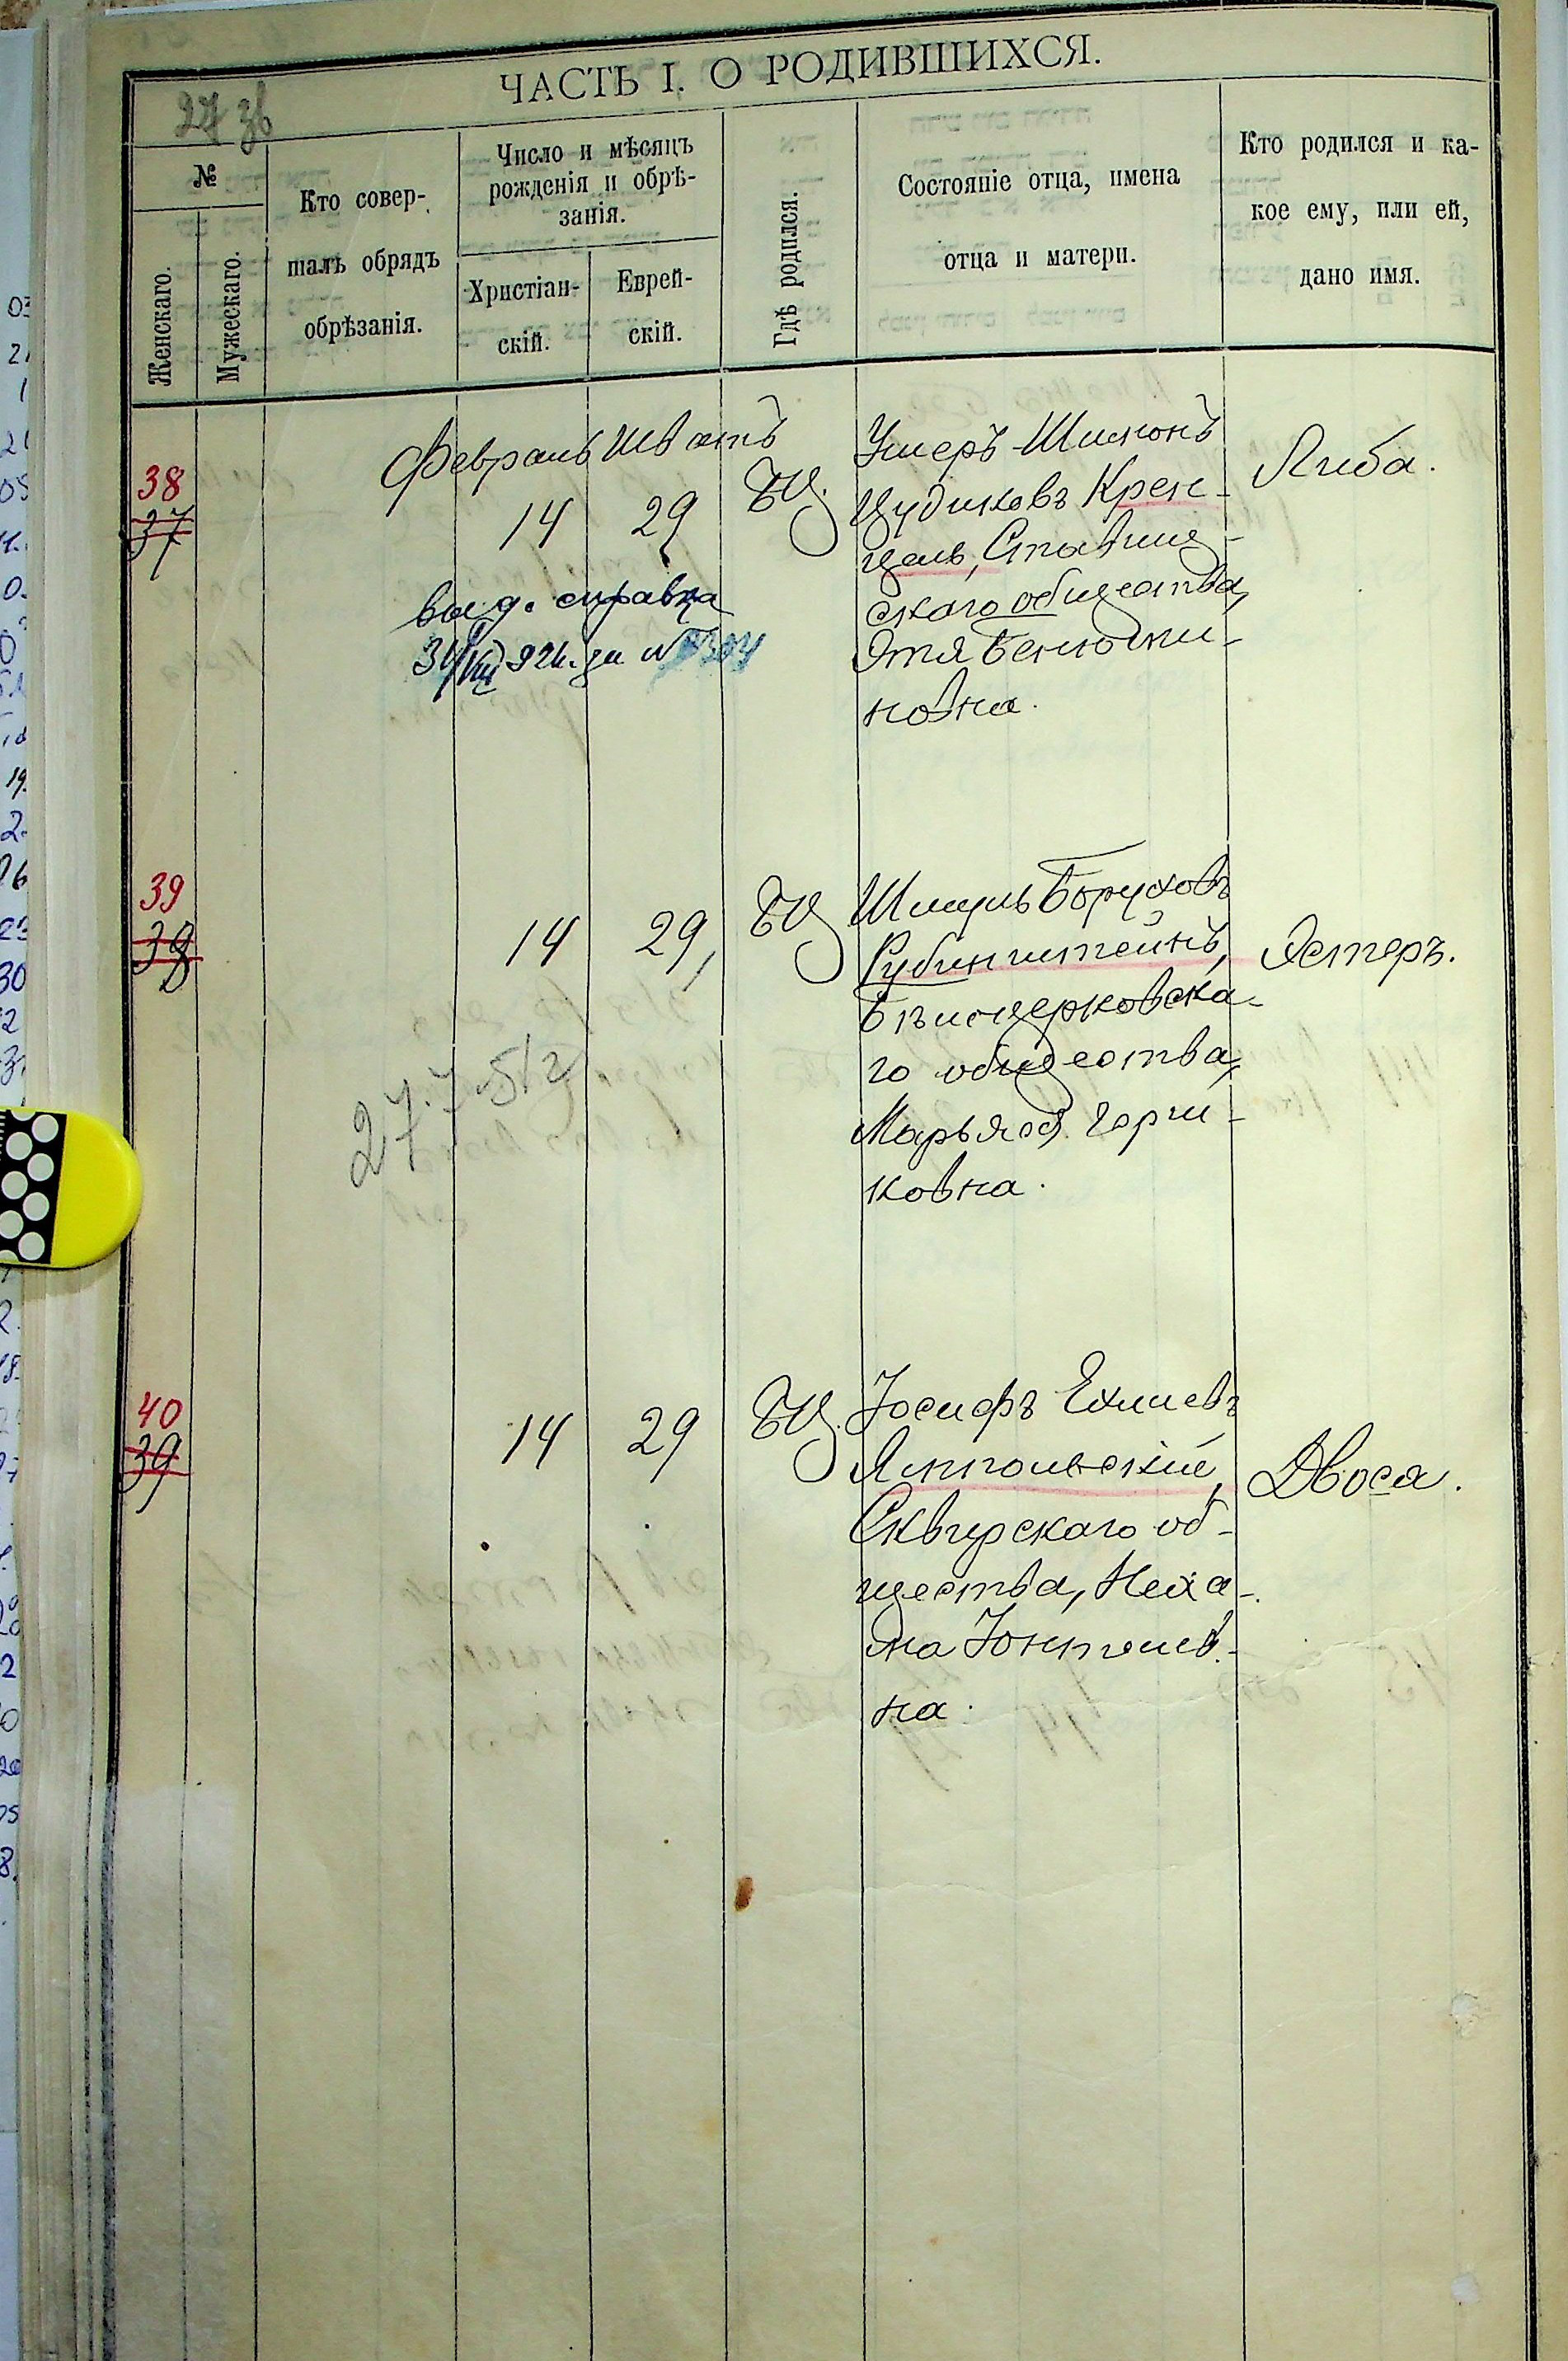 ЧАСТЬ I. О РОДИВШИХСЯ.
№
Женскаго.
Мужескаго.
Кто совер-
шалъ обрядъ
обрѣзанія.
Число и мѣсяцъ
рожденія и обрѣ-
занія.
Христіан-
скій.
Еврей-
скій.
Гдѣ родился.
Состояніе отца, имена
отца и матери.
Кто родился и ка-
кое ему, или ей,
дано имя.
Февраль Шватъ
38
37
14 29 БЦ.
Ушеръ-Шимонъ
Цудиковъ Крен-
цель, Ставищ-
скаго общества,
Этя Беніоми-
новна.
Либа.
выд. справка
39
38
14 29, БЦ
Шмуль Боруховъ
Рубинштейнъ,
Бѣлоцерковска-
го общества,
Марьяся Герш-
ковна.
Эстеръ.
27.7.512
40
39
14 29 БЦ.
Іосифъ Ехилевъ
Ямпольскій,
Сквирскаго об-
щества, Неха-
ма Юнтелев-
на.
Двося.